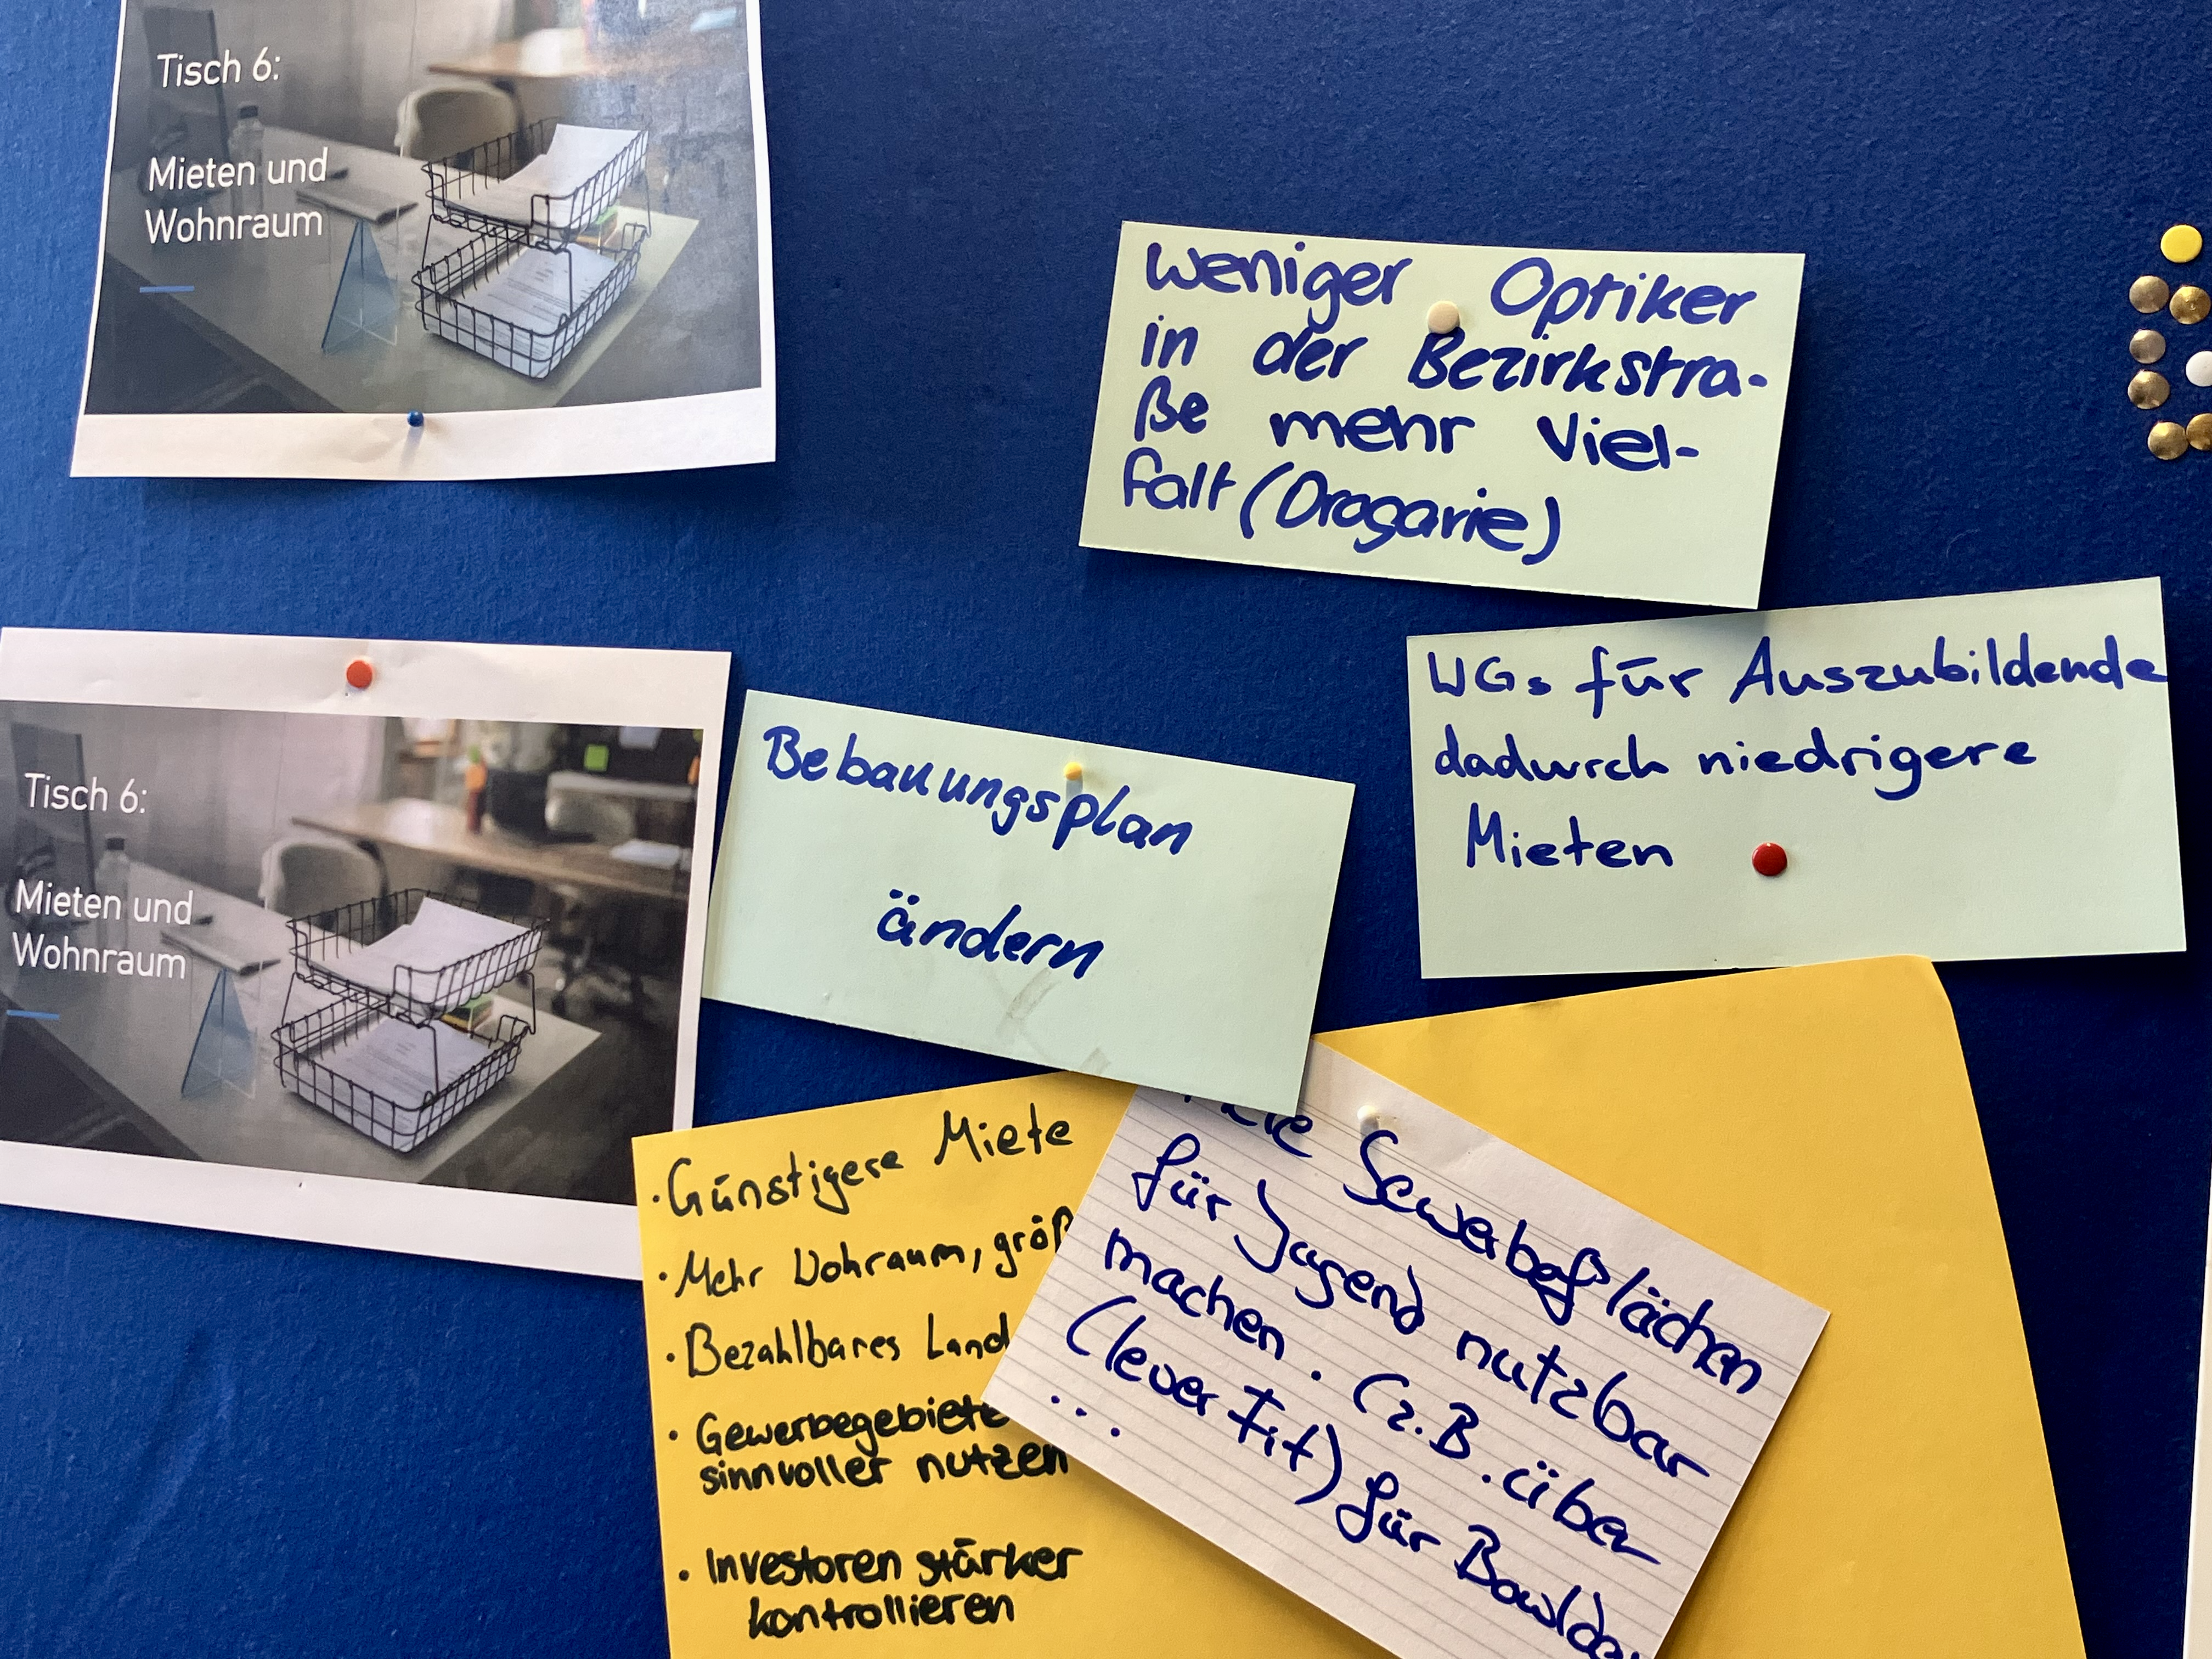 Tisch 6:
Mieten und
Wohnraum
weniger Optiker
in der Bezirkstra-
ße mehr Viel-
falt (Drogarie)
Tisch 6:
Mieten und
Wohnraum
Bebauungsplan
ändern
WGs für Auszubildende
dadurch niedrigere
Mieten
· Günstigere Miete
· Mehr Wohraum, größ
· Bezahlbares Land
· Gewerbegebiete
sinnvoller nutzen
· Investoren stärker
kontrollieren
Gewerbeflächen
für Jugend nutzbar
machen. (z.B. über
Clever Fit) für Bowlder
...